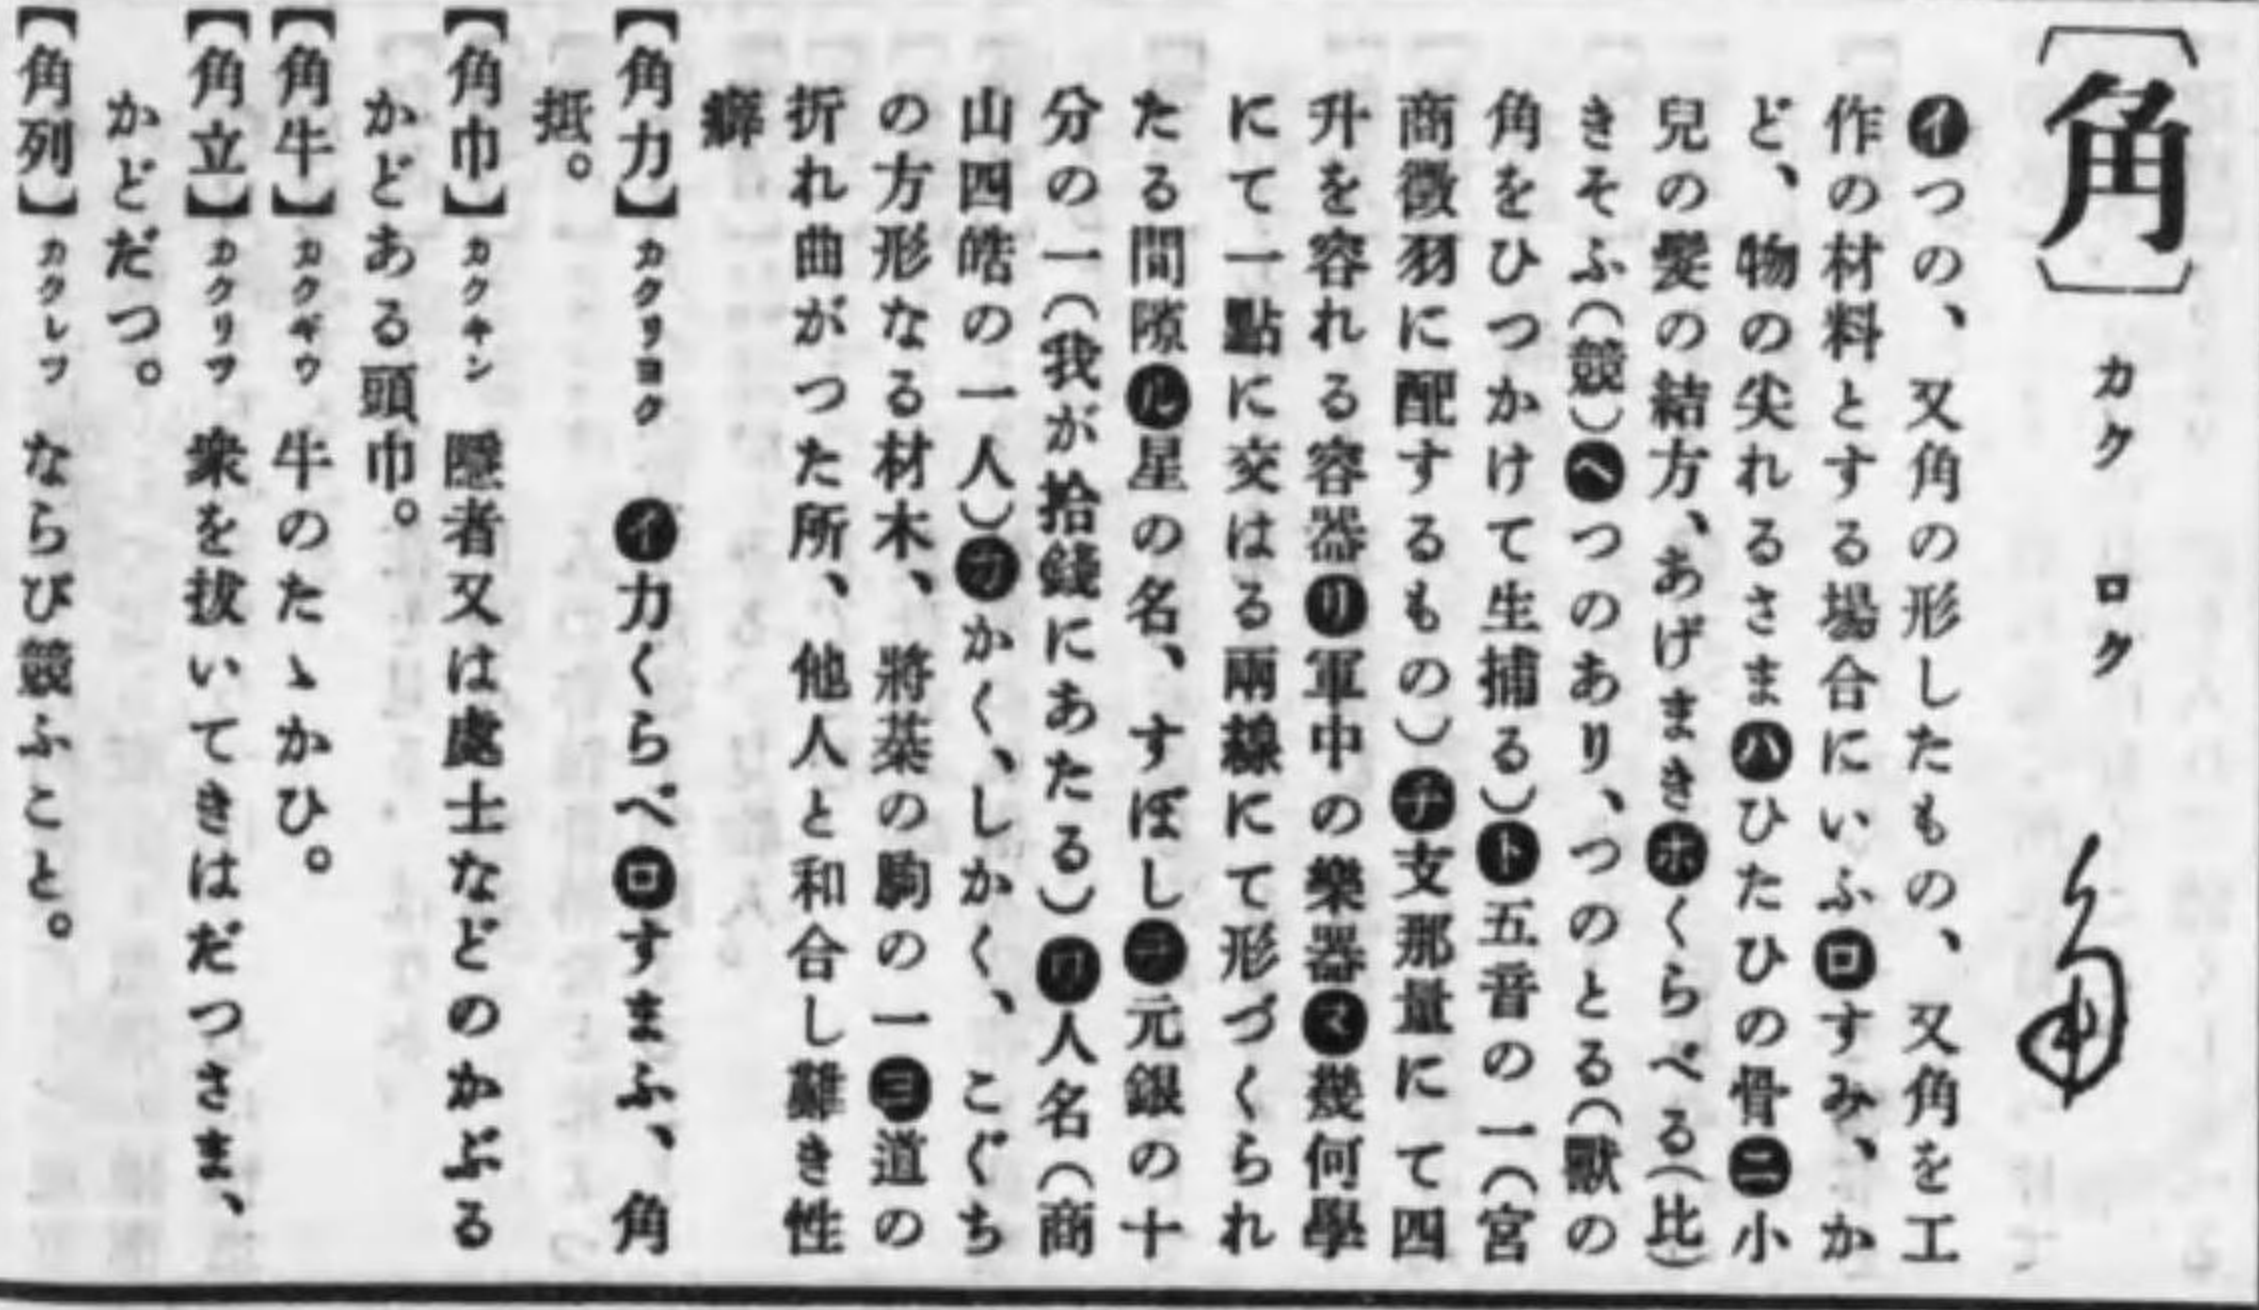 〔角〕 カク ロク
㋑つの、又角の形したもの、又角を工
作の材料とする場合にいふ㋺すみ、か
ど、物の尖れるさま㋩ひたひの骨㋥小
兒の髮の結方、あげまき㋭くらべる(比)
きそふ(競)㋬つのあり、つのとる(獸の
角をひつかけて生捕る)㋣五音の一(宮
商徵羽に配するもの)㋠支那量にて四
升を容れる容器㋷軍中の樂器㋮幾何學
にて一點に交はる兩線にて形づくられ
たる間隙㋸星の名、すぼし㋾元銀の十
分の一(我が拾錢にあたる)㋻人名(商
山四皓の一人)㋕かく、しかく、こぐち
の方形なる材木、將棊の駒の一㋵道の
折れ曲がつた所、他人と和合し難き性
癖
【角力】カクリヨク ㋑力くらべ㋺すまふ、角
抵。
【角巾】カクキン 隱者又は處士などのかぶる
かどある頭巾。
【角牛】カクギウ 牛のたゝかひ。
【角立】カクリフ 衆を拔いてきはだつさま、
かどだつ。
【角列】カクレツ ならび競ふこと。